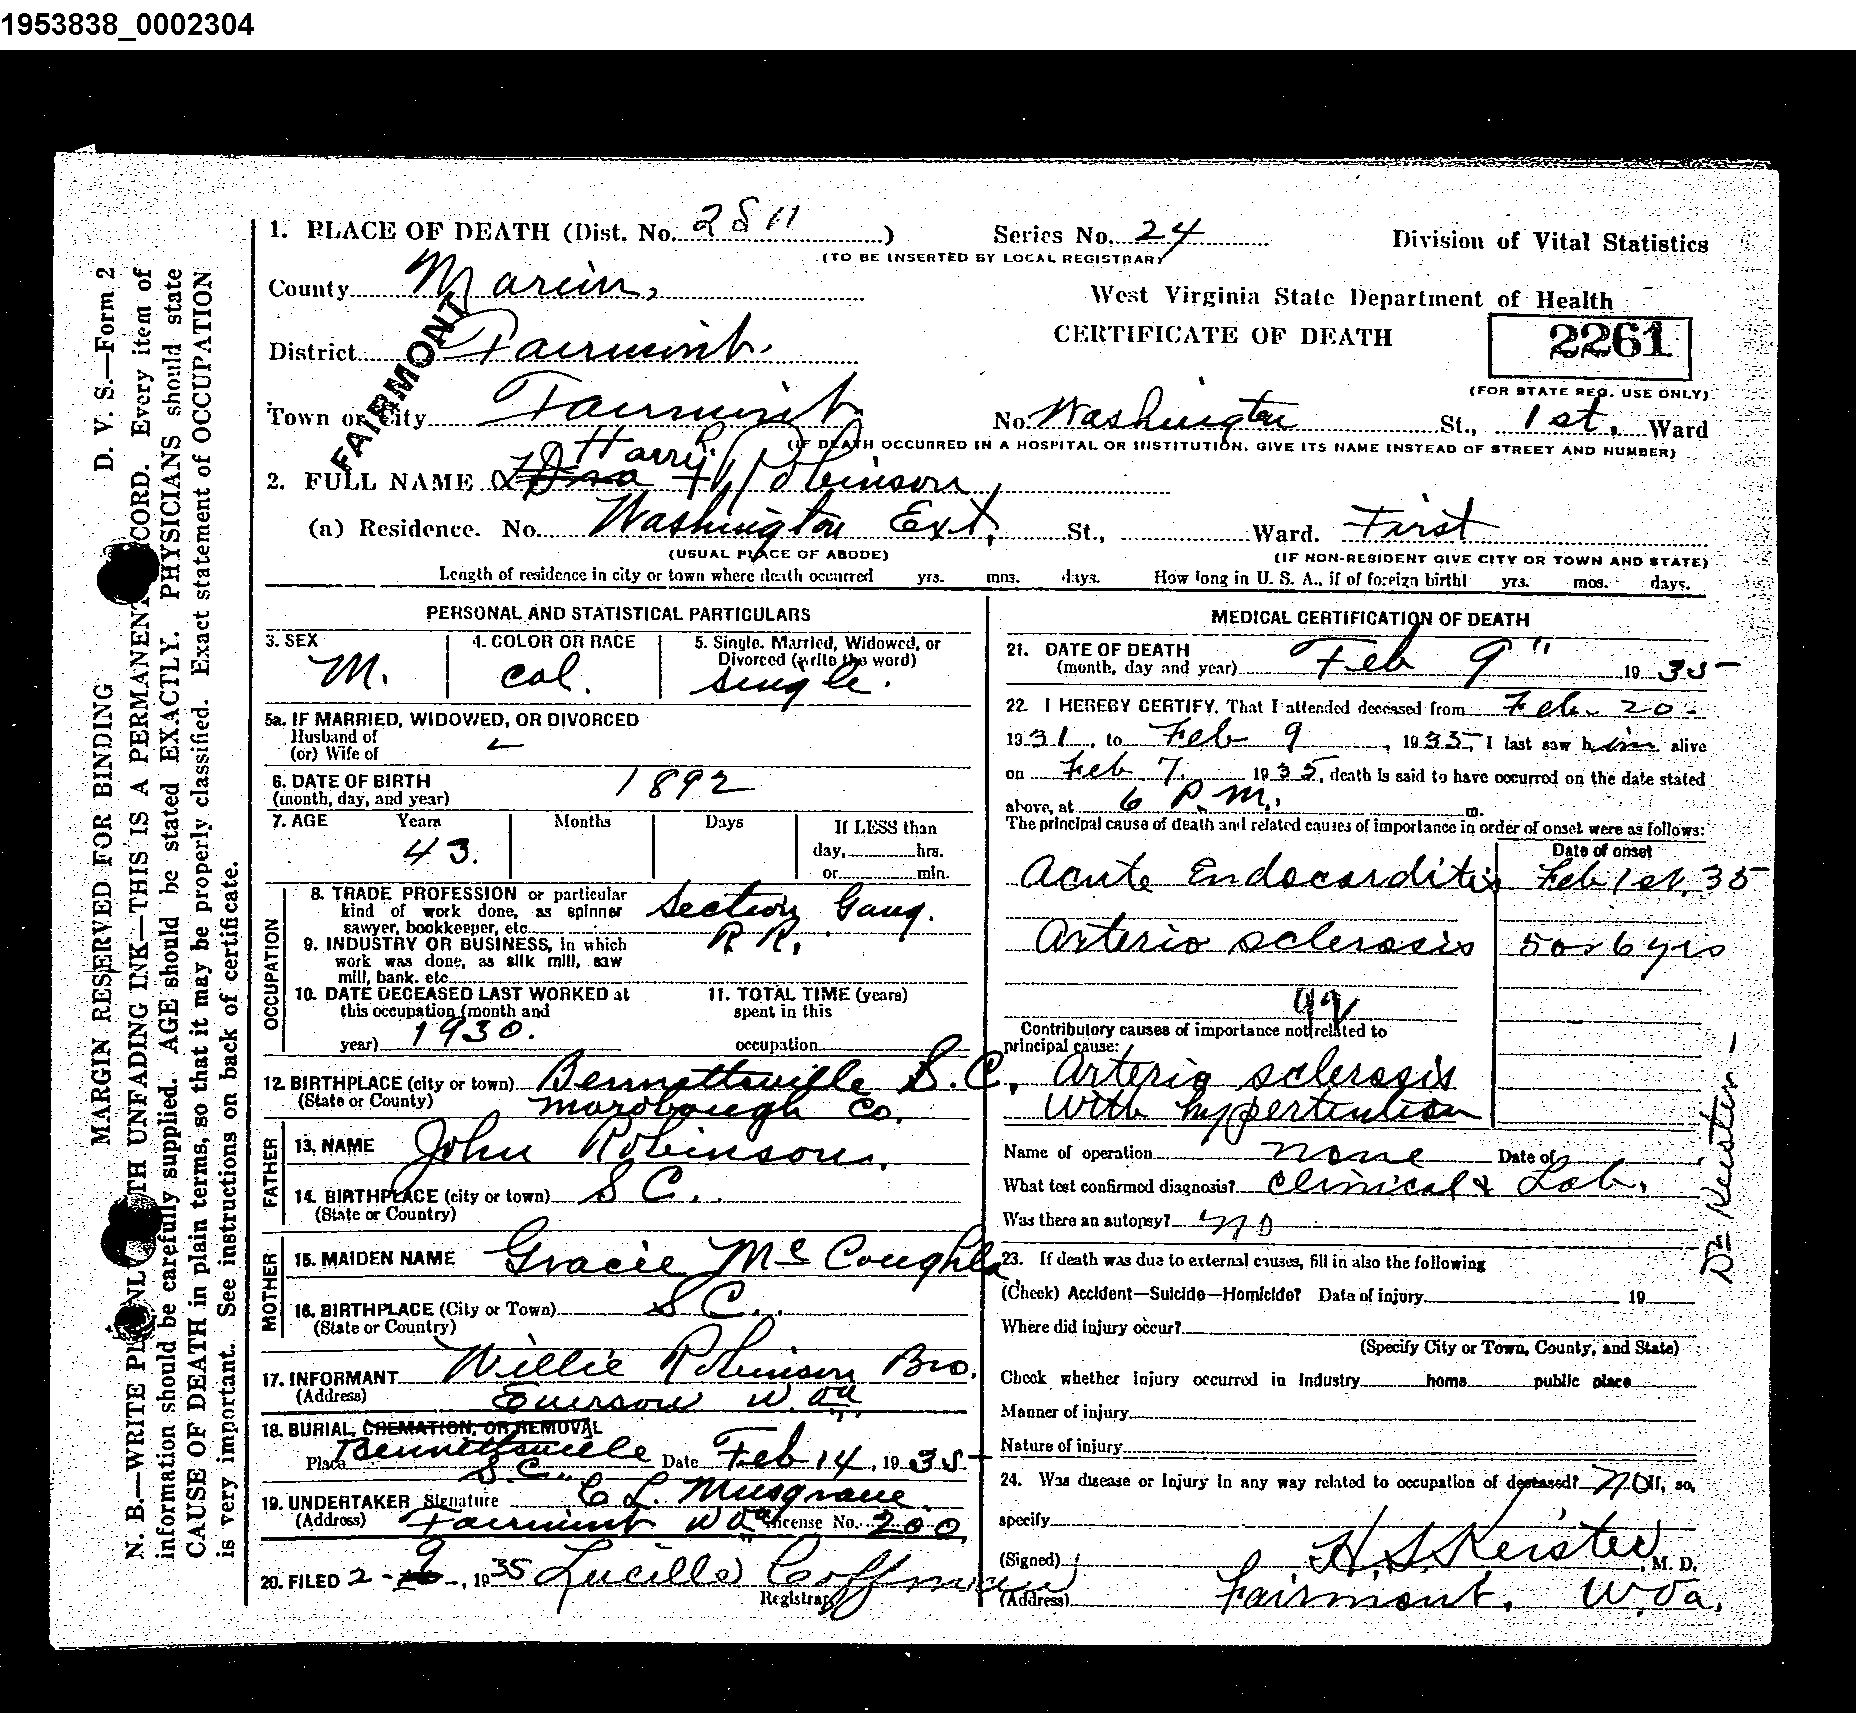 1953838_0002304
1. PLACE OF DEATH (Dist. No. 2811) Series No. 24 Division of Vital Statistics
(TO BE INSERTED BY LOCAL REGISTRAR)
County Marion, West Virginia State Department of Health
FAIRMONT
District Fairmont. CERTIFICATE OF DEATH 2261
(FOR STATE REG. USE ONLY)
Town or City Fairmont No. Washington St., 1st. Ward
(IF DEATH OCCURRED IN A HOSPITAL OR INSTITUTION, GIVE ITS NAME INSTEAD OF STREET AND NUMBER)
Harry
2. FULL NAME Robinson
(a) Residence. No. Washington Ext. St., Ward. First
(USUAL PLACE OF ABODE) (IF NON-RESIDENT GIVE CITY OR TOWN AND STATE)
Length of residence in city or town where death occurred yrs. mns. days. How long in U. S. A., if of foreign birth! yrs. mos. days.
PERSONAL AND STATISTICAL PARTICULARS
3. SEX 4. COLOR OR RACE 5. Single, Married, Widowed, or
Divorced (write the word)
M. col. single.
5a. IF MARRIED, WIDOWED, OR DIVORCED
Husband of
(or) Wife of
6. DATE OF BIRTH 1892
(month, day, and year)
7. AGE Years Months Days If LESS than
43. day, hrs.
or min.
OCCUPATION
8. TRADE PROFESSION or particular
kind of work done, as spinner Section Gang.
sawyer, bookkeeper, etc.
9. INDUSTRY OR BUSINESS, in which R R.
work was done, as silk mill, saw
mill, bank. etc.
10. DATE DECEASED LAST WORKED at 11. TOTAL TIME (years)
this occupation (month and spent in this
year) 1930. occupation
12. BIRTHPLACE (city or town) Bennettsville S.C.
(State or County) Marobough Co.
FATHER
13. NAME John Robinson.
14. BIRTHPLACE (city or town) S C.
(State or Country)
MOTHER
15. MAIDEN NAME Gracie Mc
16. BIRTHPLACE (City or Town) S C.
(State or Country)
17. INFORMANT Willie Robinson Bro.
(Address) Everson W. Va.
18. BURIAL, CREMATION, OR REMOVAL
Place Bennettsville Date Feb 14, 1935
S.C.
19. UNDERTAKER Signature C L. Musgrave.
(Address) Fairmont W Va License No. 200
20. FILED 2- 9 -, 1935 Lucille Coffman
Registrar
MEDICAL CERTIFICATION OF DEATH
21. DATE OF DEATH
(month, day and year) Feb 9" 1935
22 I HEREBY CERTIFY, That I attended deceased from Feb. 20-
1931, to Feb 9, 1935, I last saw him alive
on Feb 7. 1935, death is said to have occurred on the date stated
above, at 6 P.M. m.
The principal cause of death and related causes of importance in order of onset were as follows:
Date of onset
Acute Endocarditis Feb 1st, 35
Arterio sclerosis 5 or 6 yrs
Contributory causes of importance not related to
principal cause:
Arterio sclerosis
with hypertention
Name of operation none Date of
What test confirmed diagnosis? Clinical & Lab.
Was there an autopsy? no
23. If death was due to external causes, fill in also the following
(Check) Accident—Suicide—Homicide? Date of injury 19
Where did injury occur?
(Specify City or Town, County, and State)
Check whether injury occurred in Industry home public place
Manner of injury
Nature of injury
24. Was disease or injury in any way related to occupation of deceased? No If, so,
specify
(Signed) H. S. Keister, M. D.
(Address) Fairmont. W.Va.
Dr Keister-
D. V. S.—Form 2
MARGIN RESERVED FOR BINDING
N. B.—WRITE PLAINLY WITH UNFADING INK—THIS IS A PERMANENT RECORD. Every item of
information should be carefully supplied. AGE should be stated EXACTLY. PHYSICIANS should state
CAUSE OF DEATH in plain terms, so that it may be properly classified. Exact statement of OCCUPATION
is very important. See instructions on back of certificate.